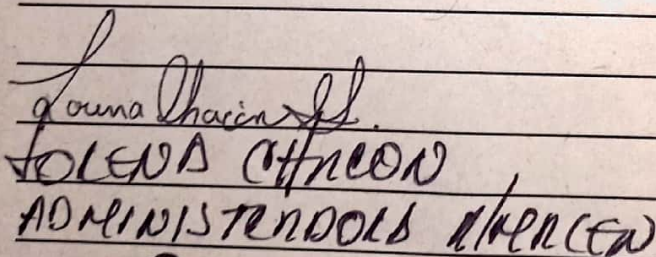 Lorena Chacón
LORENA CHACON
ADMINISTRADORA ALMACEN